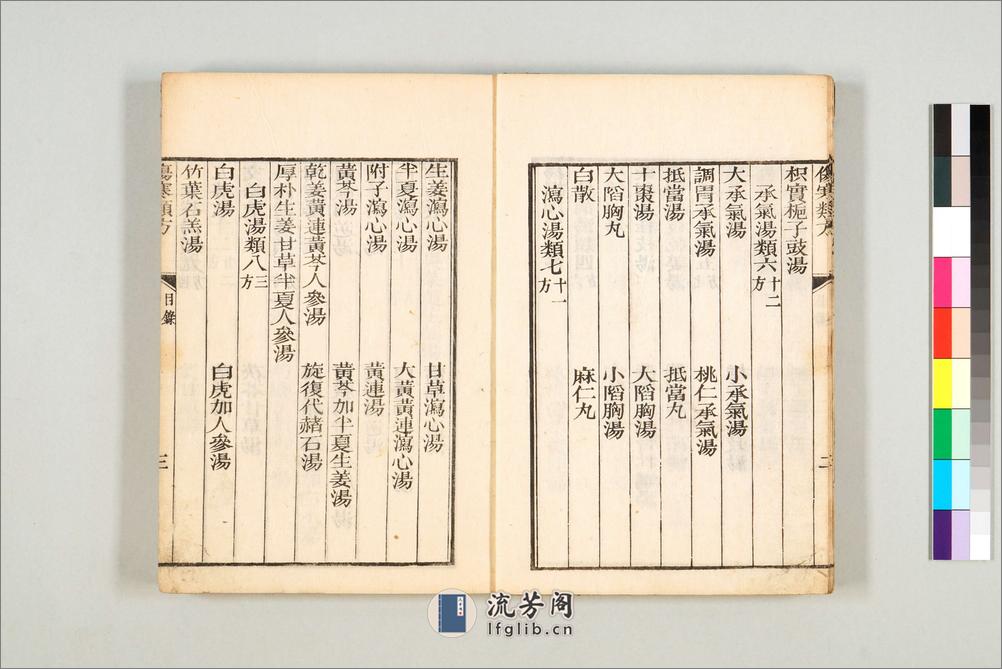 傷寒類方
二
枳實梔子豉湯
承氣湯類六十二方
大承氣湯　小承氣湯
調胃承氣湯　桃仁承氣湯
抵當湯　抵當丸
十棗湯　大陷胸湯
大陷胸丸　小陷胸湯
白散　麻仁丸
瀉心湯類七十一方
生姜瀉心湯　甘草瀉心湯
半夏瀉心湯　大黃黃連瀉心湯
附子瀉心湯　黃連湯
黃芩湯　黃芩加半夏生姜湯
乾姜黃連黃芩人參湯　旋復代赭石湯
厚朴生姜甘草半夏人參湯
白虎湯類八三方
白虎湯　白虎加人參湯
竹葉石羔湯
傷寒類方　目錄　三
流芳阁
lfglib.cn